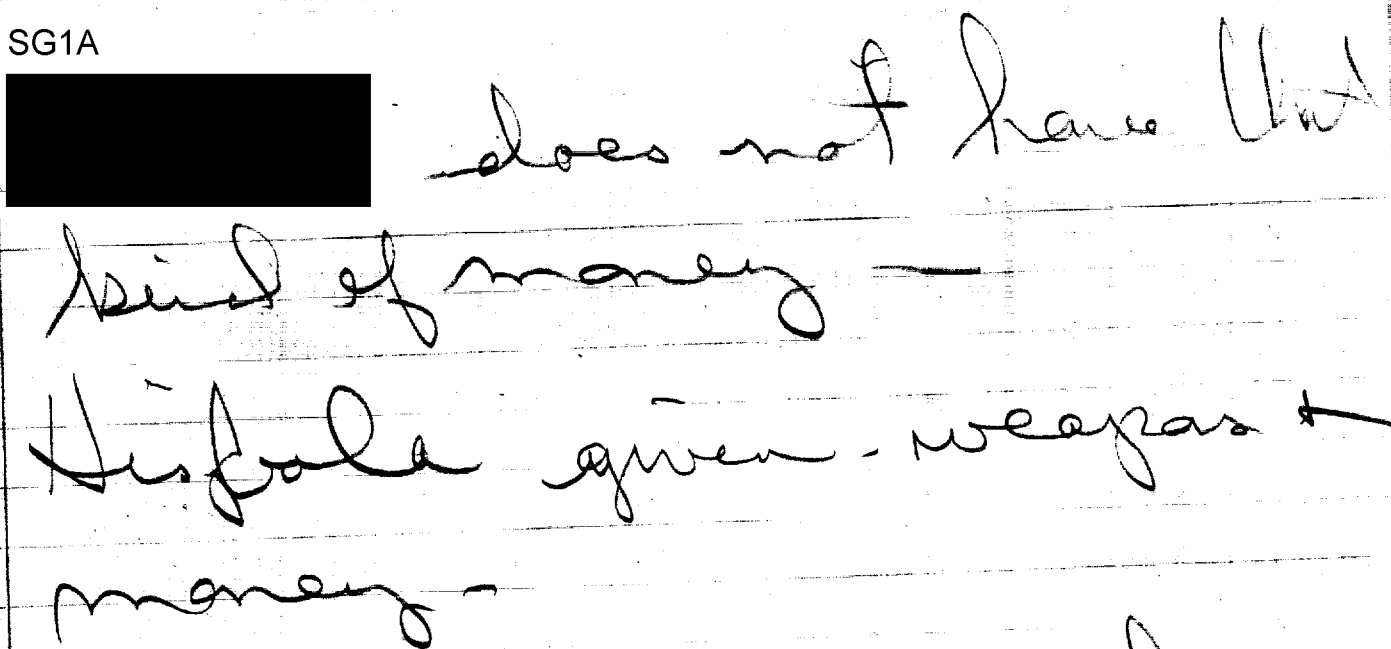 SG1A
does not have that
kind of money —
Hisbola given - weapons +
money -